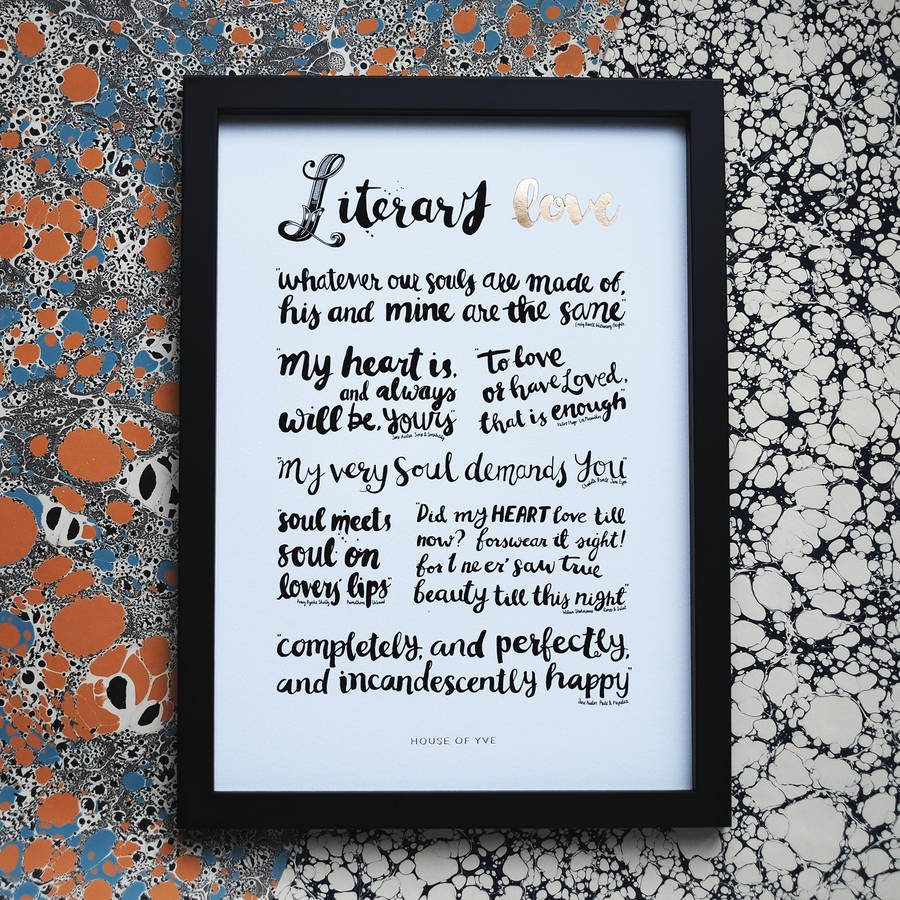 Literary love
"whatever our souls are made of,
his and mine are the same"
Emily Brontë Wuthering Heights
"My heart is,
and always
will be, yours"
Jane Austen Sense & Sensibility
"To love
or have loved,
that is enough"
Victor Hugo Les Misérables
"My very soul demands you"
Charlotte Brontë Jane Eyre
"soul meets
soul on
lovers' lips"
Percy Bysshe Shelley Prometheus Unbound
"Did my HEART love till
now? forswear it sight!
for I ne'er saw true
beauty till this night"
William Shakespeare Romeo & Juliet
"completely, and perfectly,
and incandescently happy"
Jane Austen Pride & Prejudice
HOUSE OF YVE